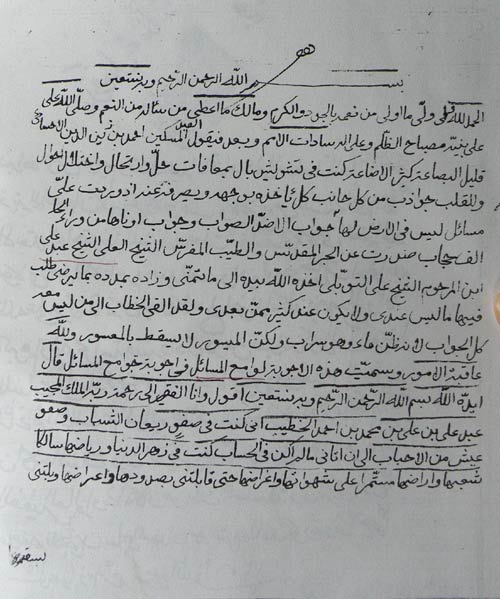 بسم الله الرحمن الرحيم وبه نستعين
الحمد لله على ولي ما اولى من نعمه بالجود والكرم ومالك ما اعطى من سئاله من النعم وصلى الله على
على نبيه مصباح الظلم وعلى اله سادات الامم وبعد فيقول العبد المسكين احمد بن زين الدين الاحسائي
قليل البضاعة كثير الاضاعة كنت في تشويش بال بمعافات حل وارتحال واختلال احوال
وللقلب جواذب من كل جانب كل ياخذه بوجهه ويصرفه عند اذ وردت علي
مسائل ليس في الارض لها جواب الا ضد الصواب وجواب اوناها من وراء
الف حجاب صدرت عن الحبر المقدس والطيب المغرس الشيخ العلي الشيخ عبد علي
ابن المرحوم الشيخ علي التوبلي اخذ الله بيده الى ما يتمنى وزاده بمدده بما يرضى طلب
فيها ما ليس عندي ولا يكون عند كثير ممن بعدي ولقد القى الخطاب الى من ليس معه
كل الجواب لا تظنن ماء وهو سراب ولكن الميسور لا يسقط بالمعسور ولله
عاقبة الامور وسميت هذه الاجوبة لوامع المسائل في اجوبة جوامع المسائل قال
ايده الله بسم الله الرحمن الرحيم وبه نستعين اقول وانا الفقير الى رحمة ربه الملك المجيب
عبد علي بن علي بن محمد بن احمد الخطيب اني كنت في صفو ريعان الشباب وصفو
عيش من الاحباب الى ان اتاني ما لم اكن في الحساب كنت في زهر الدنيا ورياضها سالكا
شعبها واراضها مستمرا على شهواتها واغراضها حتى قابلتني بصدودها واعراضها وبلتني